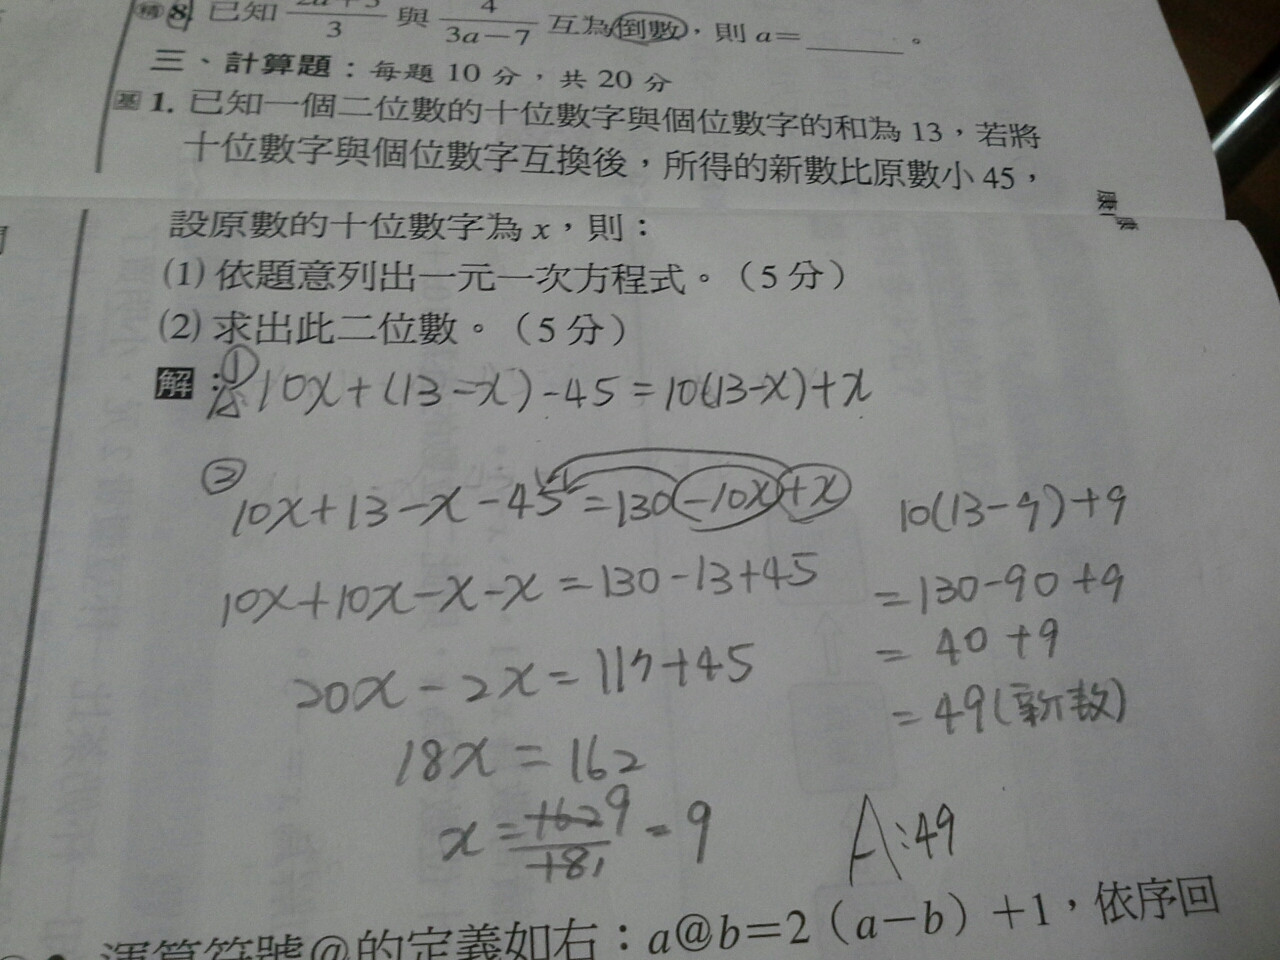 8. 已知 2a+3/3 與 4/3a-7 互為倒數，則 a=______。
三、計算題：每題 10 分，共 20 分
基 1. 已知一個二位數的十位數字與個位數字的和為 13，若將
十位數字與個位數字互換後，所得的新數比原數小 45，
設原數的十位數字為 x，則：
(1) 依題意列出一元一次方程式。（5 分）
(2) 求出此二位數。（5 分）
解：① 10x+(13-x)-45=10(13-x)+x
② 10x+13-x-45=130-10x+x
10x+10x-x-x=130-13+45
20x-2x=117+45
18x=162
x=162/18=9
10(13-9)+9
=130-90+9
=40+9
=49(新数)
A:49
運算符號@的定義如右：a@b=2（a-b）+1，依序回